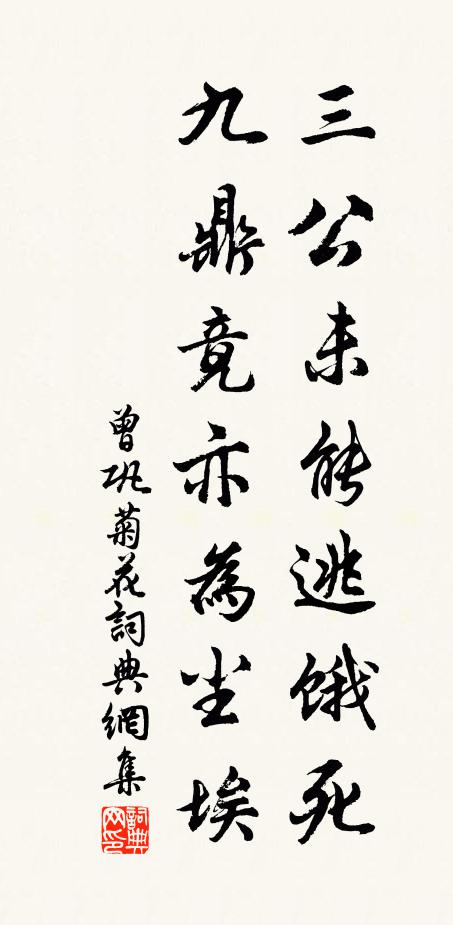 三公未能逃餓死
九鼎竟亦為尘埃
曾巩菊花詞典網集
詞典网印